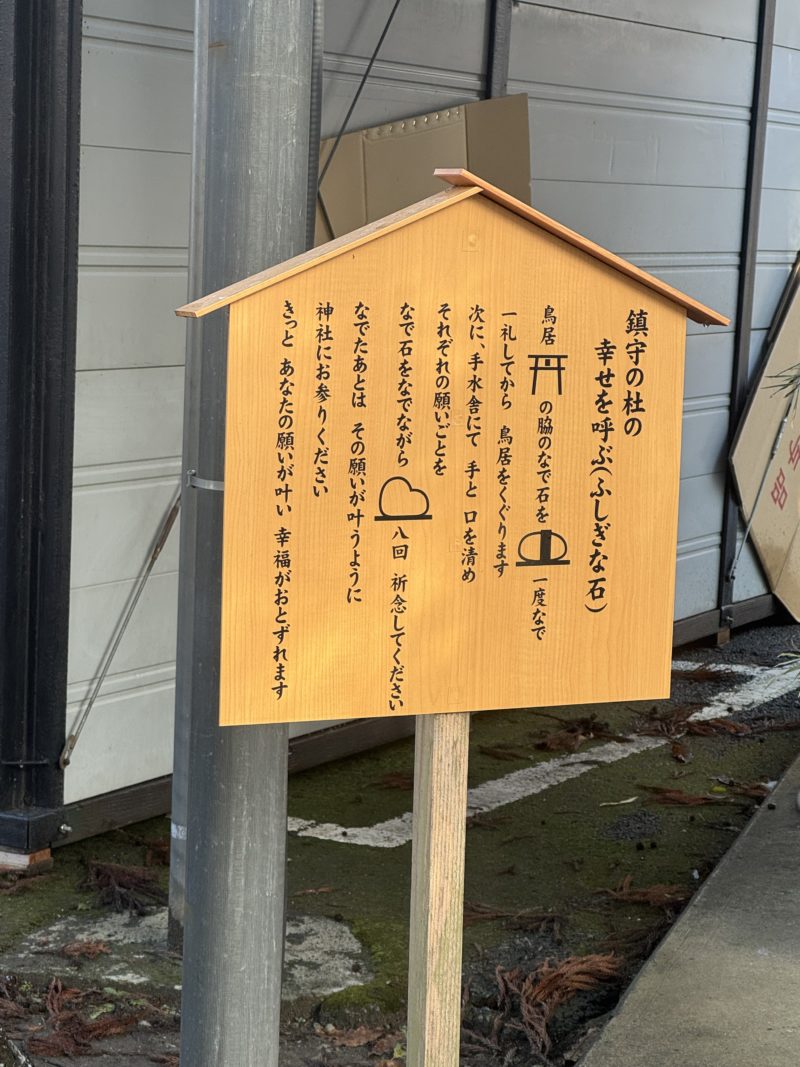 鎮守の杜の
幸せを呼ぶ(ふしぎな石)
鳥居 の脇のなで石を 一度なで
一礼してから 鳥居をくぐります
次に、手水舎にて 手と 口を清め
それぞれの願いごとを
なで石をなでながら 八回 祈念してください
なでたあとは その願いが叶うように
神社にお参りください
きっと あなたの願いが叶い 幸福がおとずれます